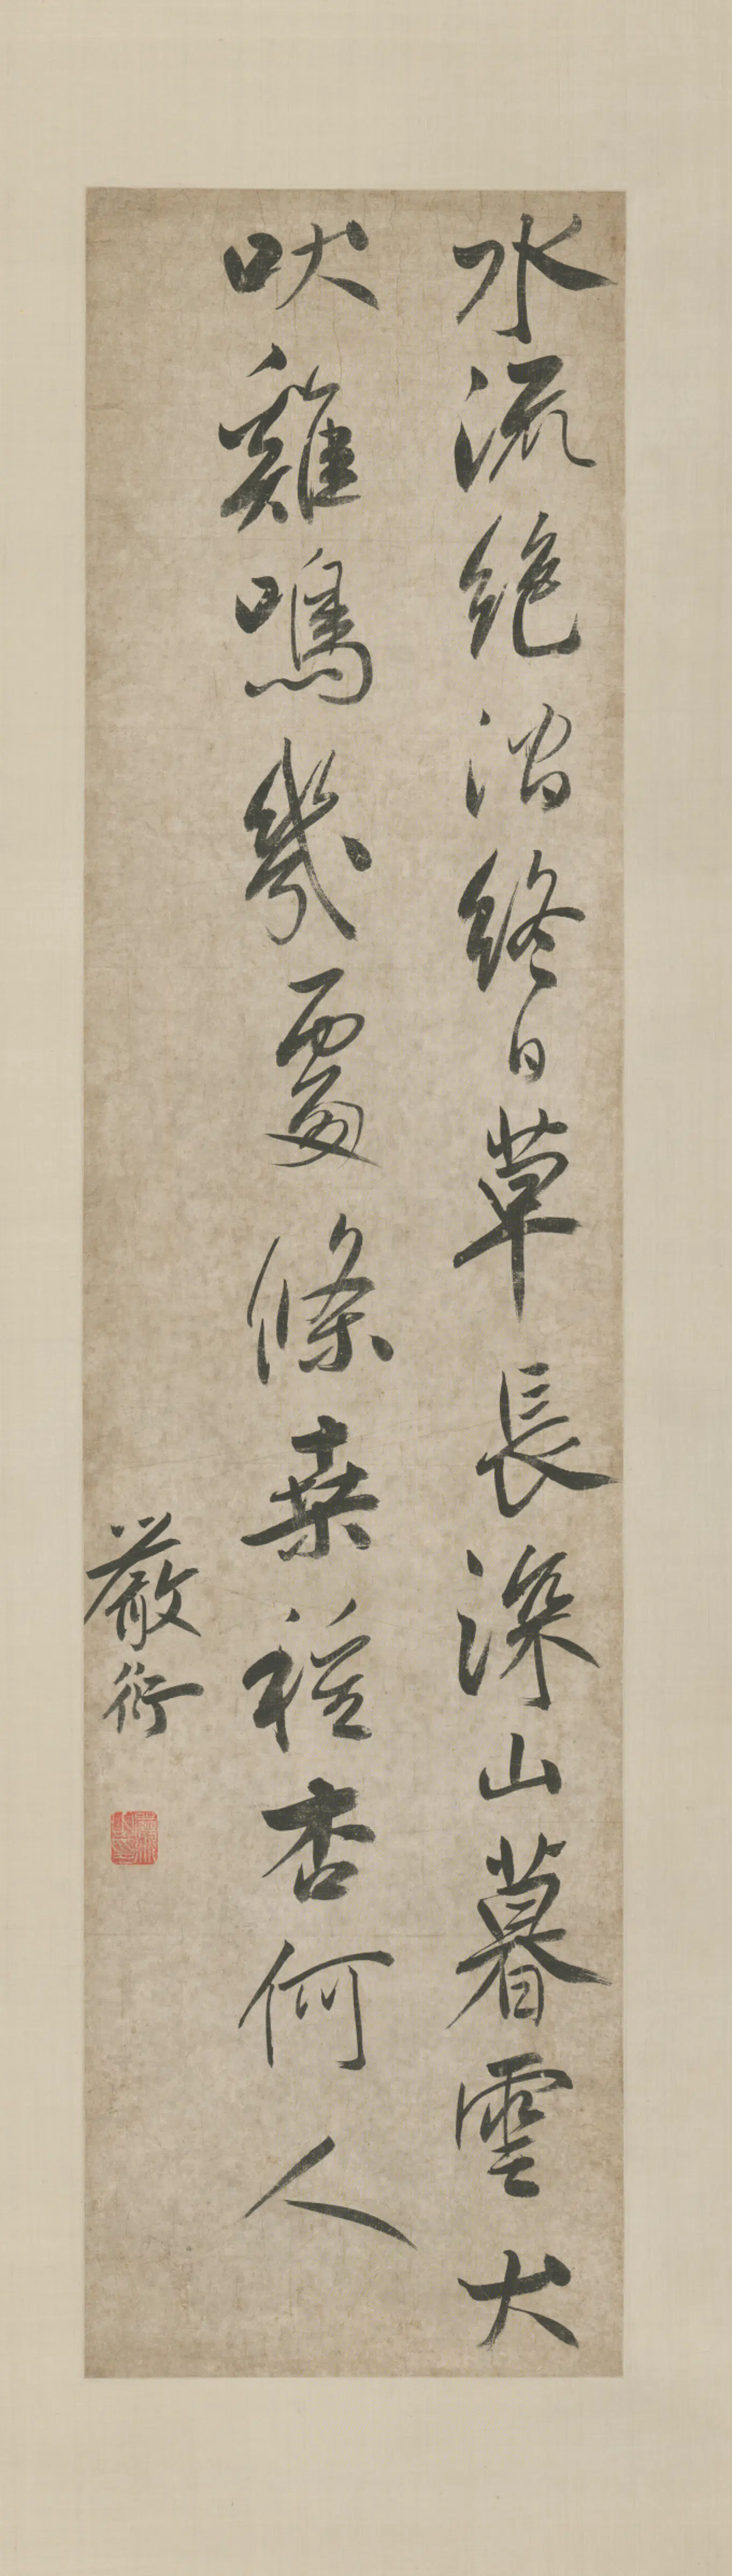 水流絕澗終日草長深山暮雲犬
吠雞鳴幾處條桑種杏何人
嚴衍